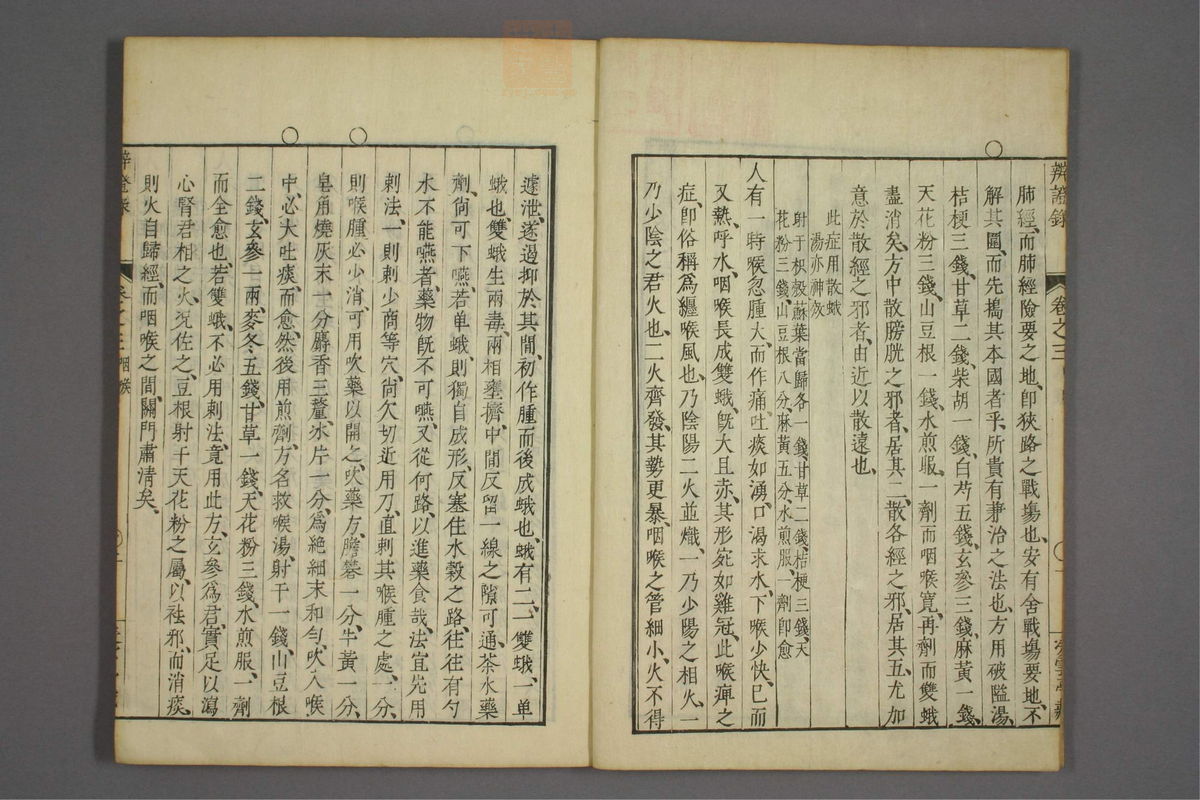 辨證錄
卷之三
肺經、而肺經險要之地、卽狹路之戰塲也、安有舍戰塲要地、不
解其圍、而先搗其本國者乎、所貴有兼治之法也、方用破隘湯、
桔梗三錢、甘草二錢、柴胡一錢、白芍五錢、玄參三錢、麻黃一錢、
天花粉三錢、山豆根一錢、水煎服、一劑而咽喉寬、再劑而雙蛾
盡消矣、方中散膀胱之邪者、居其二、散各經之邪、居其五、尤加
意於散經之邪者、由近以散遠也、
此症用散蛾
湯亦神效
射干枳殼蘇葉當歸各一錢、甘草二錢、桔梗三錢、天
花粉三錢、山豆根八分、麻黃五分、水煎服、一劑卽愈
人有一時喉忽腫大、而作痛、吐痰如湧、口渴求水、下喉少快、已而
又熱、呼水、咽喉長成雙蛾、旣大且赤、其形宛如雞冠、此喉痺之
症、卽俗稱爲纏喉風也、乃陰陽二火並熾、一乃少陽之相火、一
乃少陰之君火也、二火齊發、其勢更暴、咽喉之管細小、火不得
遽泄、遂遏抑於其間、初作腫而後成蛾也、蛾有二、一雙蛾、一单
蛾也、雙蛾生兩毒、兩相壅擠、中間反留一線之隙、可通茶水藥
劑、尙可下嚥、若单蛾、則獨自成形、反塞住水穀之路、往往有勺
水不能嚥者、藥物旣不可嚥、又從何路、以進藥食哉、法宜先用
刺法、一則刺少商等穴、尙欠切近、用刀、直刺其喉腫之處、一分、
則喉腫必少消、可用吹藥以開之、吹藥方、膽礬一分、牛黃一分、
皂角燒灰末一分、麝香三釐、冰片一分、爲絕細末、和勻、吹入喉
中、必大吐痰、而愈、然後用煎劑、方名救喉湯、射干一錢、山豆根
二錢、玄參一兩、麥冬五錢、甘草一錢、天花粉三錢、水煎服、一劑
而全愈也、若雙蛾、不必用刺法、竟用此方、玄參爲君、實足以瀉
心腎君相之火、況佐之、豆根射干天花粉之屬、以祛邪、而消痰、
則火自歸經、而咽喉之間、關門肅淸矣、
卷之三咽喉